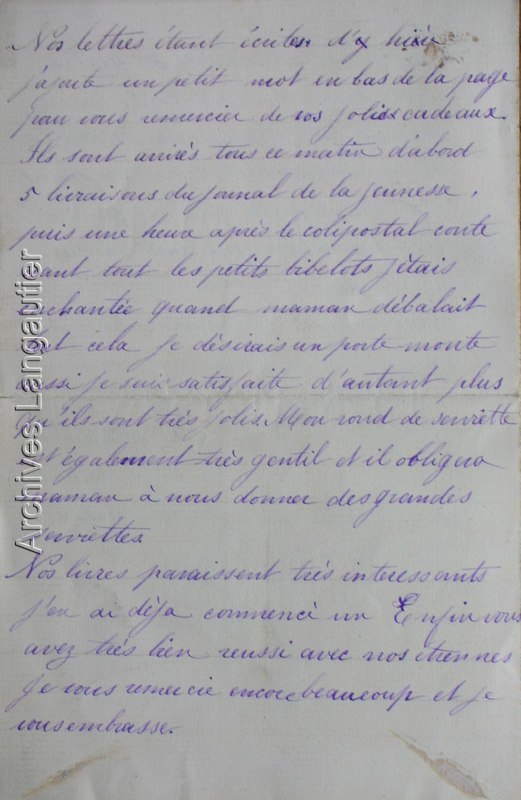 Nos lettres étant écrites d'y hièr
j'ajoute un petit mot en bas de la page
pour vous remercier de vos jolies cadeaux.
Ils sont arrivés tous ce matin d'abord
5 livraisons du Journal de la Jeunesse,
puis une heure après le colipostal conte
nant tout les petits bibelots j'étais
enchantée quand maman débalait
tout cela je désirais un porte monte
aussi je suis satisfaite d'autant plus
qu'ils sont très jolis. Mon rond de serviette
est également très gentil et il obligera
maman à nous donner des grandes
serviettes
Nos livres paraissent très interessants
j'en ai déja commencé un Enfin vous
avez très bien reussi avec nos étrennes
Je vous remercie encore beaucoup et je
vous embrasse.
Archives Langautier